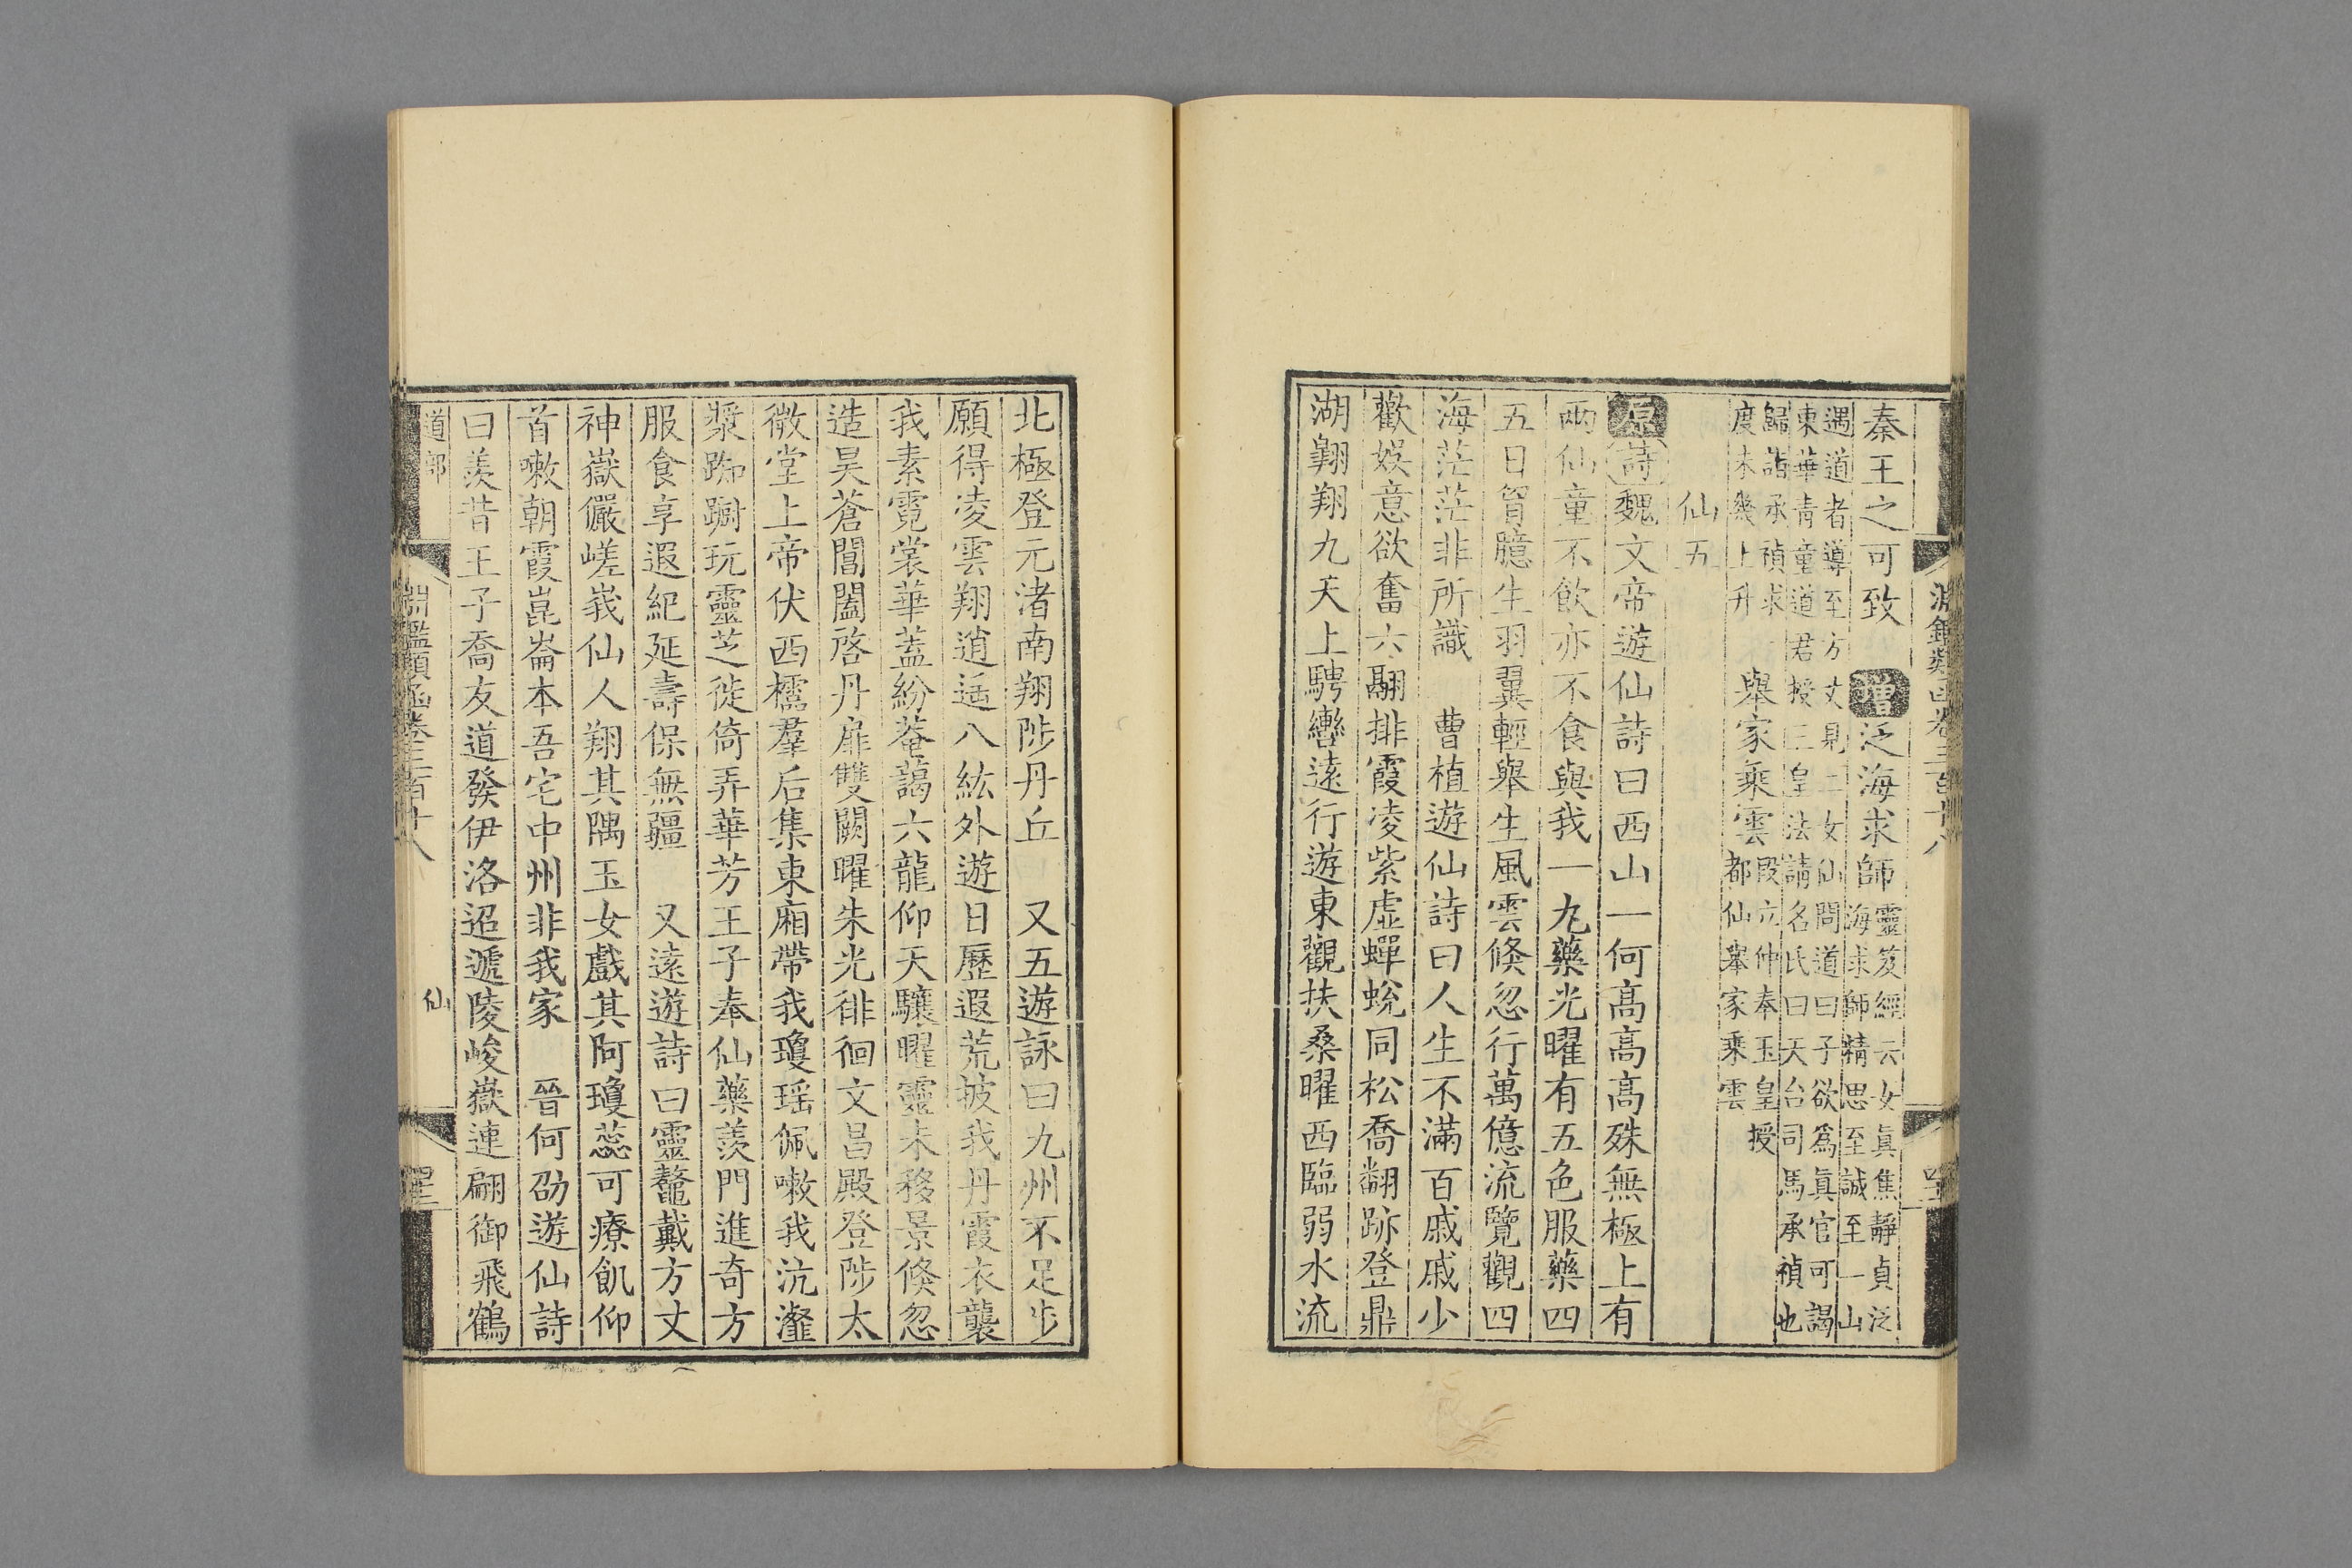 淵鑑類函卷三百十八
秦王之可致 增泛海求師
靈笈經云女真焦靜貞泛
海求師精思至誠至一山
遇道者導至方丈見二女仙問道曰子欲爲真官可謁
東華青童道君授三皇法請名氏曰天台司馬承禎也
歸詣承禎求
度未幾上升
舉家乘雲
段立仲奉玉皇授
都仙舉家乘雲
仙五
原詩魏文帝遊仙詩曰西山一何高高高殊無極上有
兩仙童不飲亦不食與我一丸藥光曜有五色服藥四
五日胷臆生羽翼輕舉生風雲倏忽行萬億流覽觀四
海茫茫非所識 曹植遊仙詩曰人生不滿百戚戚少
歡娛意欲奮六翮排霞凌紫虛蟬蛻同松喬翻跡登鼎
湖翺翔九天上騁轡遠行遊東觀扶桑曜西臨弱水流
北極登元渚南翔陟丹丘 又五遊詠曰九州不足步
願得凌雲翔逍遙八紘外遊日歷遐荒披我丹霞衣襲
我素霓裳華蓋紛菴藹六龍仰天驤曜靈未移景倏忽
造昊蒼閶闔啓丹扉雙闕曜朱光徘徊文昌殿登陟太
微堂上帝伏西櫺羣后集東廂帶我瓊瑤佩嗽我沆瀣
漿踟躕玩靈芝徙倚弄華芳王子奉仙藥羨門進奇方
服食享遐紀延壽保無疆 又遠遊詩曰靈鼇戴方丈
神嶽儼嵯峩仙人翔其隅玉女戲其阿瓊蕊可療飢仰
首嗽朝霞崑崙本吾宅中州非我家 晉何劭遊仙詩
曰羨昔王子喬友道發伊洛迢遞陵峻嶽連翩御飛鶴
道部
淵鑑類函卷三百十八
仙